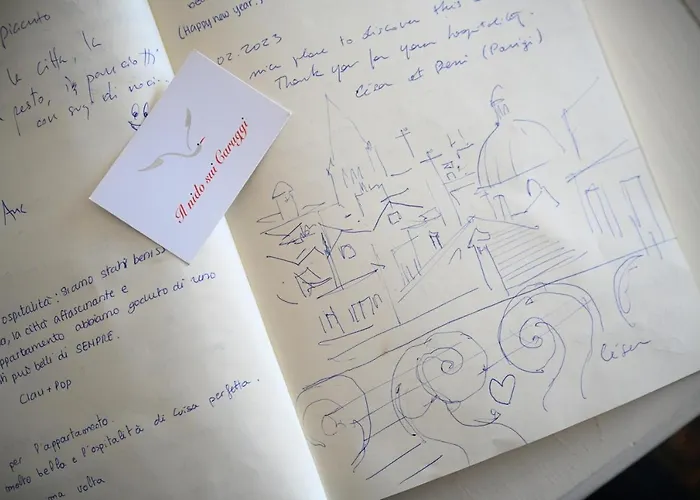 piaciuto
la città, la
pesto, i
con sugo di noci...
Anc
ospitalità: siamo stati beniss
la città affascinante e
appartamento abbiamo goduto di uno
più belli di SEMPRE.
Clau + Pop
per l'appartamento.
molto bella e l'ospitalità di Luisa perfetta.
ma volta
Il nido sui Caruggi
(Happy new year.)
02.2023
nice place to discover this
Thank you for your hospitality.
et Remi (Parigi)